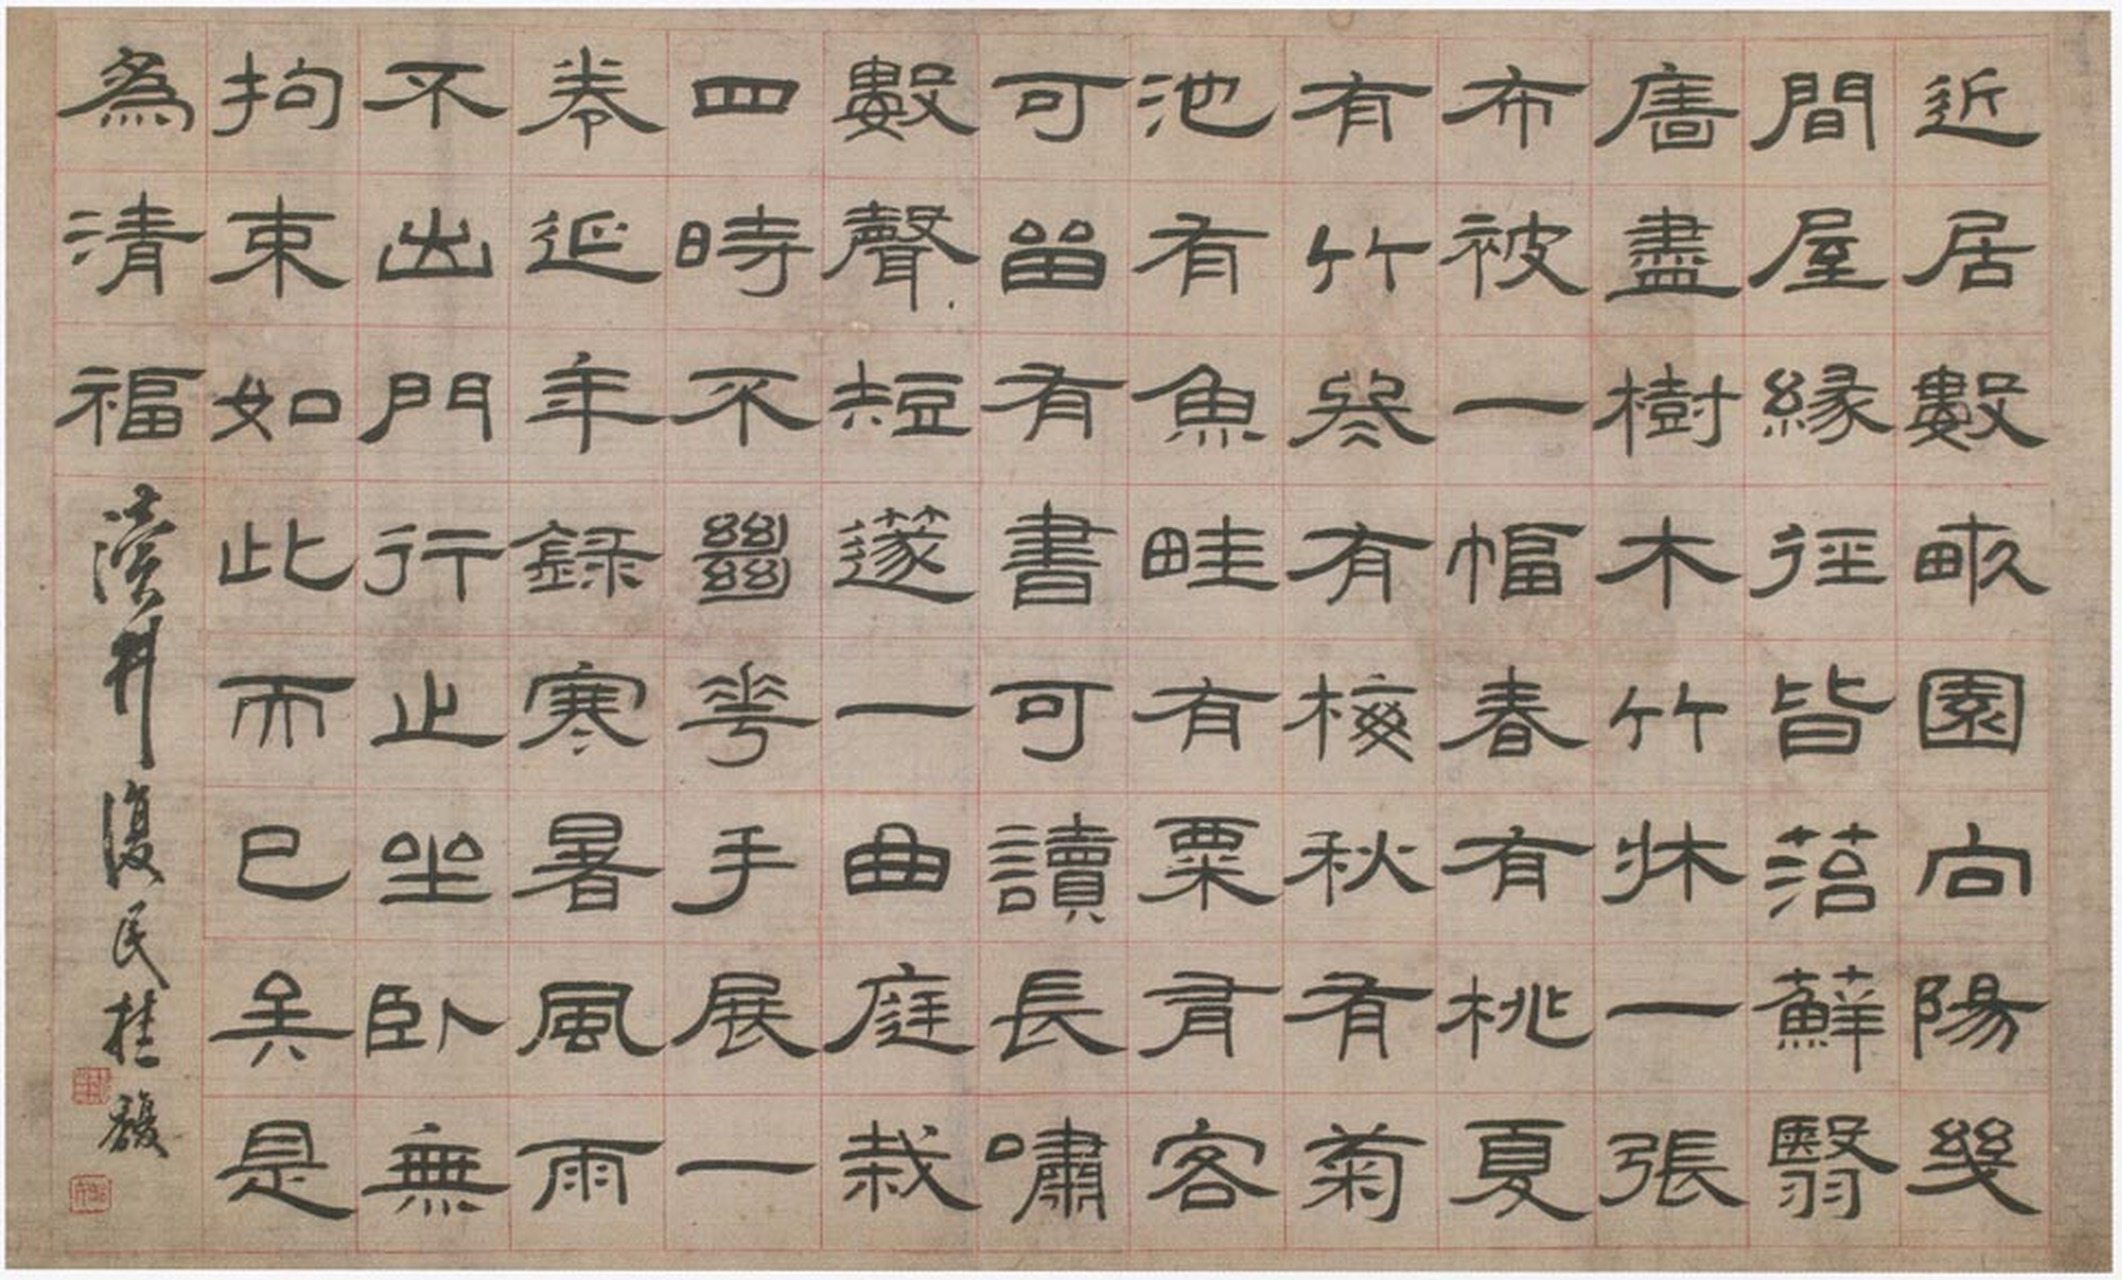 近居數畝園向陽幾
間屋緣徑皆菭蘚翳
廧盡樹木竹牀一張
布被一幅春有桃夏
有竹冬有梅秋有菊
池有魚畦有粟有客
可留有書可讀長嘯
數聲短篴一曲庭栽
四時不𢇍華手展一
卷延年錄寒暑風雨
不出門行止坐臥無
拘束如此而已矣是
為清福 瀆井復民桂馥